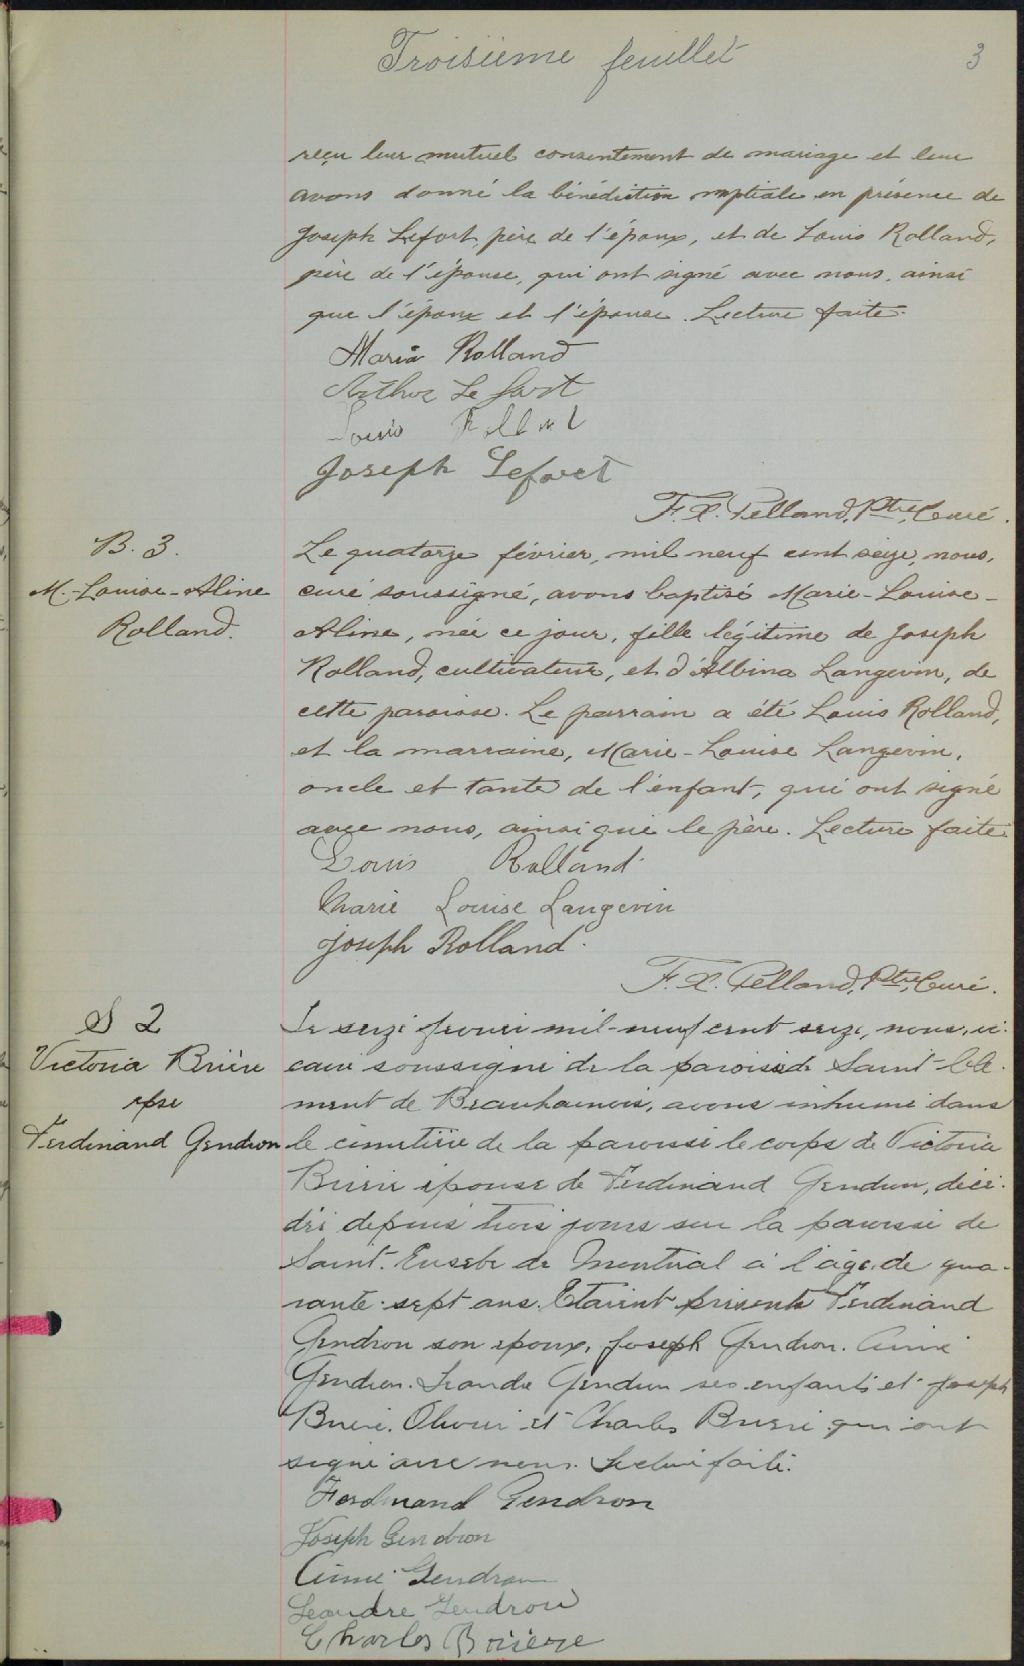 Troisième feuillet
3
reçu leur mutuel consentement de mariage et leur
avons donné la bénédiction nuptiale en présence de
Joseph Lefort, père de l'époux, et de Louis Rolland,
père de l'épouse, qui ont signé avec nous, ainsi
que l'époux et l'épouse. Lecture faite.
Maria Rolland
Arthur Lefort
Louis Rolland
Joseph Lefort
F.X. Pelland, Ptre, Curé.
B. 3.
M.-Louise-Aline
Rolland.
Le quatorze février, mil neuf cent seize, nous,
curé soussigné, avons baptisé Marie-Louise-
Aline, née ce jour, fille légitime de Joseph
Rolland, cultivateur, et d'Albina Langevin, de
cette paroisse. Le parrain a été Louis Rolland,
et la marraine, Marie-Louise Langevin,
oncle et tante de l'enfant, qui ont signé
avec nous, ainsi que le père. Lecture faite.
Louis Rolland
Marie Louise Langevin
Joseph Rolland.
F.X. Pelland, Ptre, Curé.
S 2
Victoria Brière
epse
Ferdinand Gendron
Le seize fevrier mil-neuf cent seize, nous, vi-
caire soussigné de la paroisse de Saint-Clé-
ment de Beauharnois, avons inhumé dans
le cimetière de la paroisse le corps de Victoria
Brière épouse de Ferdinand Gendron, décé-
dée depuis trois jours sur la paroisse de
Saint-Eusèbe de Montréal à l'âge de qua-
rante-sept ans. Etaient présents Ferdinand
Gendron son époux, Joseph Gendron. Aimé
Gendron. Leandre Gendron ses enfants et Joseph
Brière. Olivier et Charles Brière qui ont
signé avec nous. Lecture faite.
Ferdinand Gendron
Joseph Gendron
Aimé Gendron
Leandre Gendron
Charles Brisere